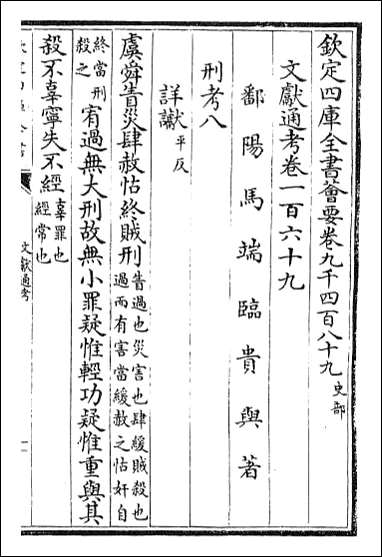 欽定四庫全書薈要卷九千四百八十九 史部
文獻通考卷一百六十九
鄱陽馬端臨貴與著
刑考八
詳讞 平反
虞舜眚災肆赦怙終賊刑 眚過也災害也肆緩賊殺也過而有害當緩赦之怙奸自
終當刑殺之 宥過無大刑故無小罪疑惟輕功疑惟重與其
殺不辜寧失不經 辜罪也經常也
文獻通考
一